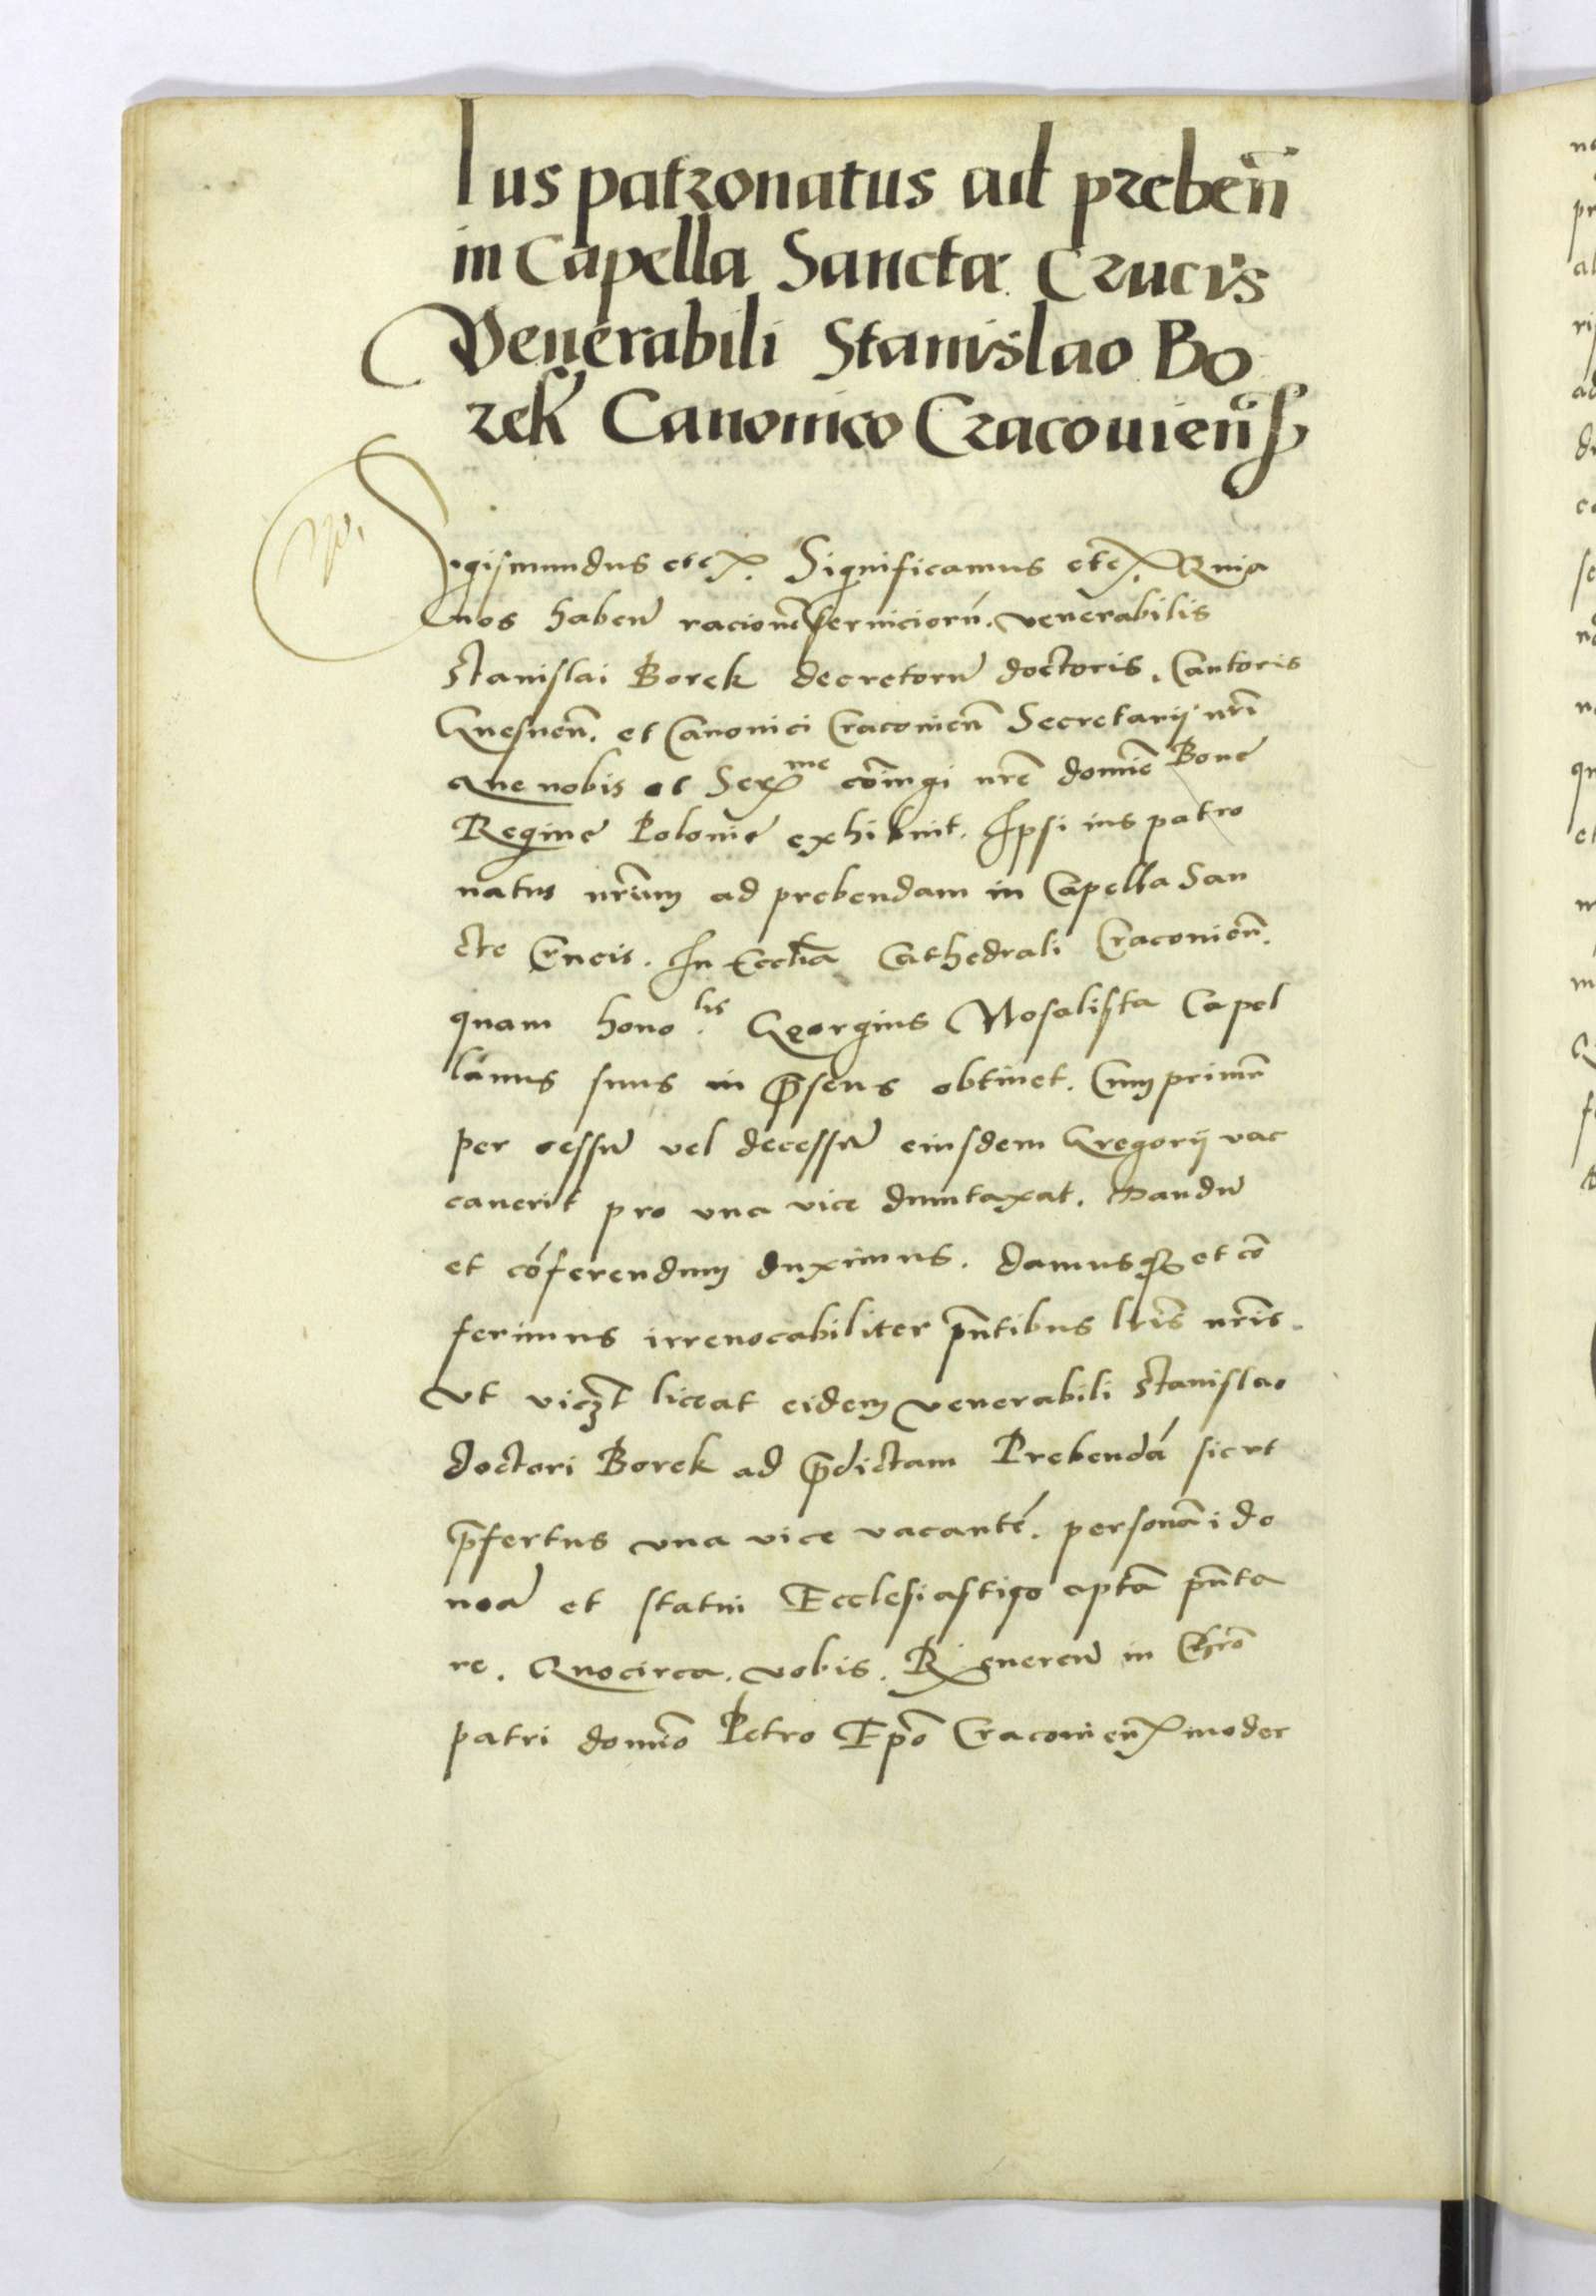 Ius patronatus ad preben̄
in Capella Sanctæ Crucis
Venerabili Stanislao Bo
rek Canonico Cracouien̄ß
Sigismundus etc. Significamus etc. Quia
nos haben̄ racionē seruiciorū. venerabilis
Stanislai Borek decretorū doctoris. Cantoris
Gnesnen̄. et Canonici Cracouien̄ Secretarij nr̄i
que nobis et Serme cōiugi nr̄e domīe Bone
Regine Polonie exhibuit. Ipsi ius patro
natus nr̄um ad prebendam in Capella San
cte Crucis. In Ecclīa Cathedrali Cracouien̄.
quam honolis Georgius Rosalista Capel
lanus suus in p̄sens obtinet. Cum primū
per cessū vel decessū eiusdem Gregorij vac
cauerit pro vna vice dumtaxat. Dandū
et cōferendum duximus. damusq et cō
ferimus irreuocabiliter pn̄tibus lr̄is nr̄is.
Vt viczt liceat eidem venerabili Stanislao
doctori Borek ad p̄dictam Prebendā sicut
p̄fertus vna vice vacantē. personā ido
neā et statui Ecclesiastico aptā pn̄ta
re. Quocirca. vobis. R eueren̄ in Chrō
patri domīo Petro Ep̄o Cracouien̄ moder